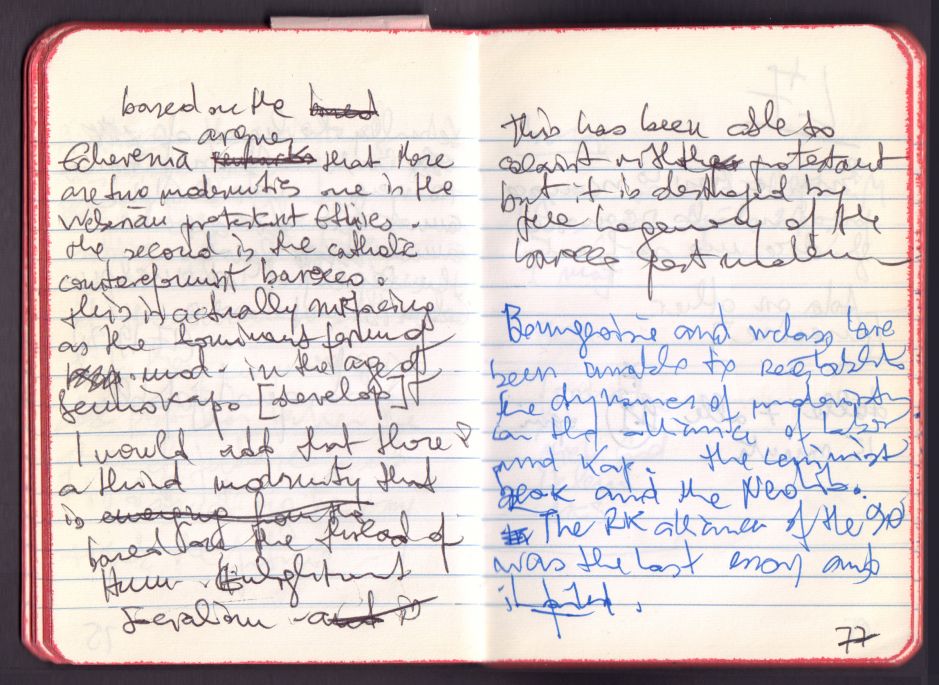 based on the based
argue
Echeverria that there
are two modernities one is the
Weberian protestant Ethics.
the second is the catholic
counterreformist barocco.
this is actually
as the dominant form of
mod. in the age of
Semiokap. [develop]
I would add that there is
a third modernity that
is emerging from the
based on the thread of
Hum. Enlightment
This has been able to
coexist with the protestant
but it is destroyed by
the hegemony of the
barocco postmodern
Bourgeoisie and w class have
been unable to reestablish
the dynamics of modernity
on the alliance of labor
and Kap. the Leninist
and the Neolib.
The RK alliance of the 90'
was the last essay and
it failed.
77